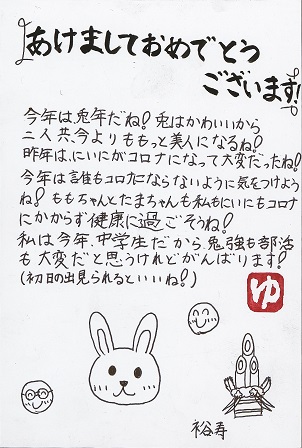 あけましておめでとう
ございます!
今年は、兎年だね!兎はかわいいから
二人共、今よりももっと美人になるね!
昨年は、にいにがコロナになって大変だったね!
今年は誰もコロナにならないように気をつけよう
ね!ももちゃんとたまちゃんも私もにいにもコロナ
にかからず健康に過ごそうね!
私は今年、中学生だから、勉強も部活
も大変だと思うけれどがんばります!
(初日の出見られるといいね!)
ゆ
裕寿